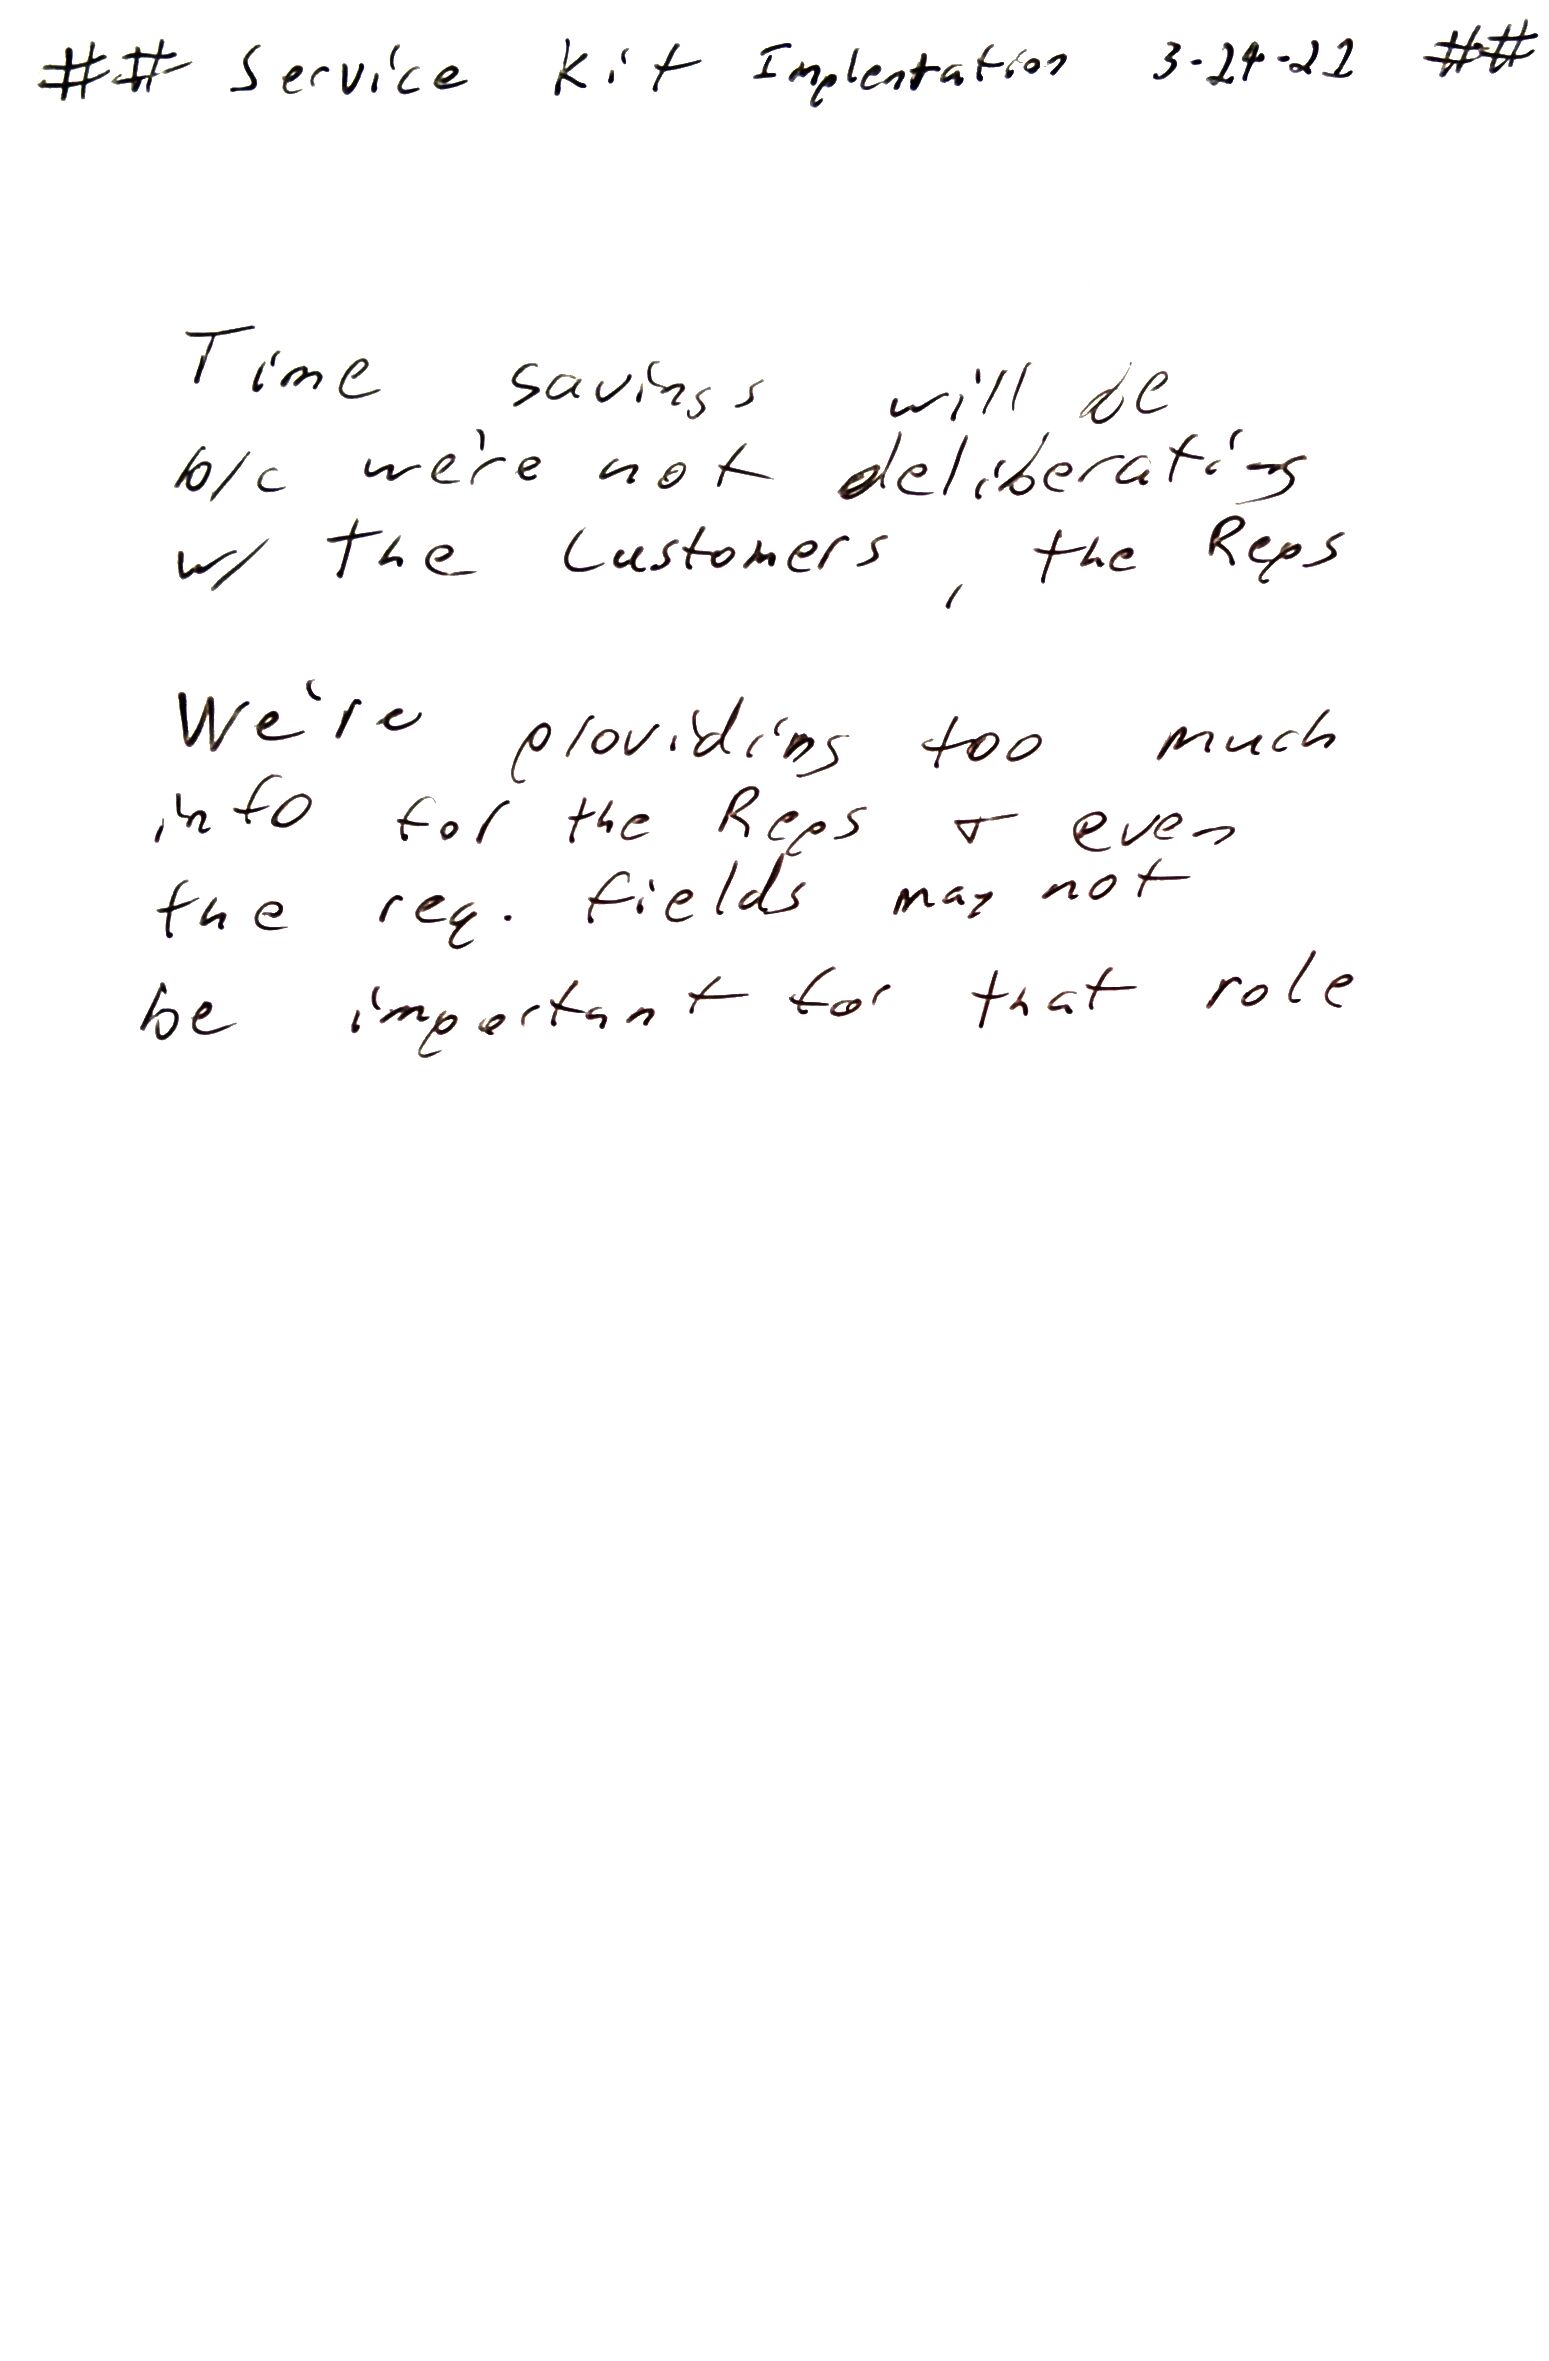 ## Service Kit Implentation 3-24-22 ##
Time savings will be
b/c we're not deliberating
w/ the Customers, the Reps
We're providing too much
info for the Reps & even
the req. fields may not
be important for that role